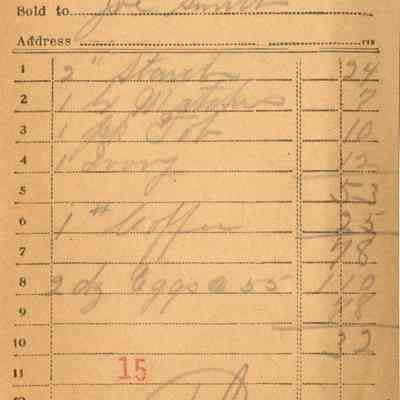 Sold to Joe Smith
Address
1 2 " Starch 24
2 1 Matches 7
3 1 Tob 10
4 1 Ivory 12
5 53
6 1 # Coffee 25
7 78
8 2 dz Eggs @ 55 110
9 78
10 32
11 15